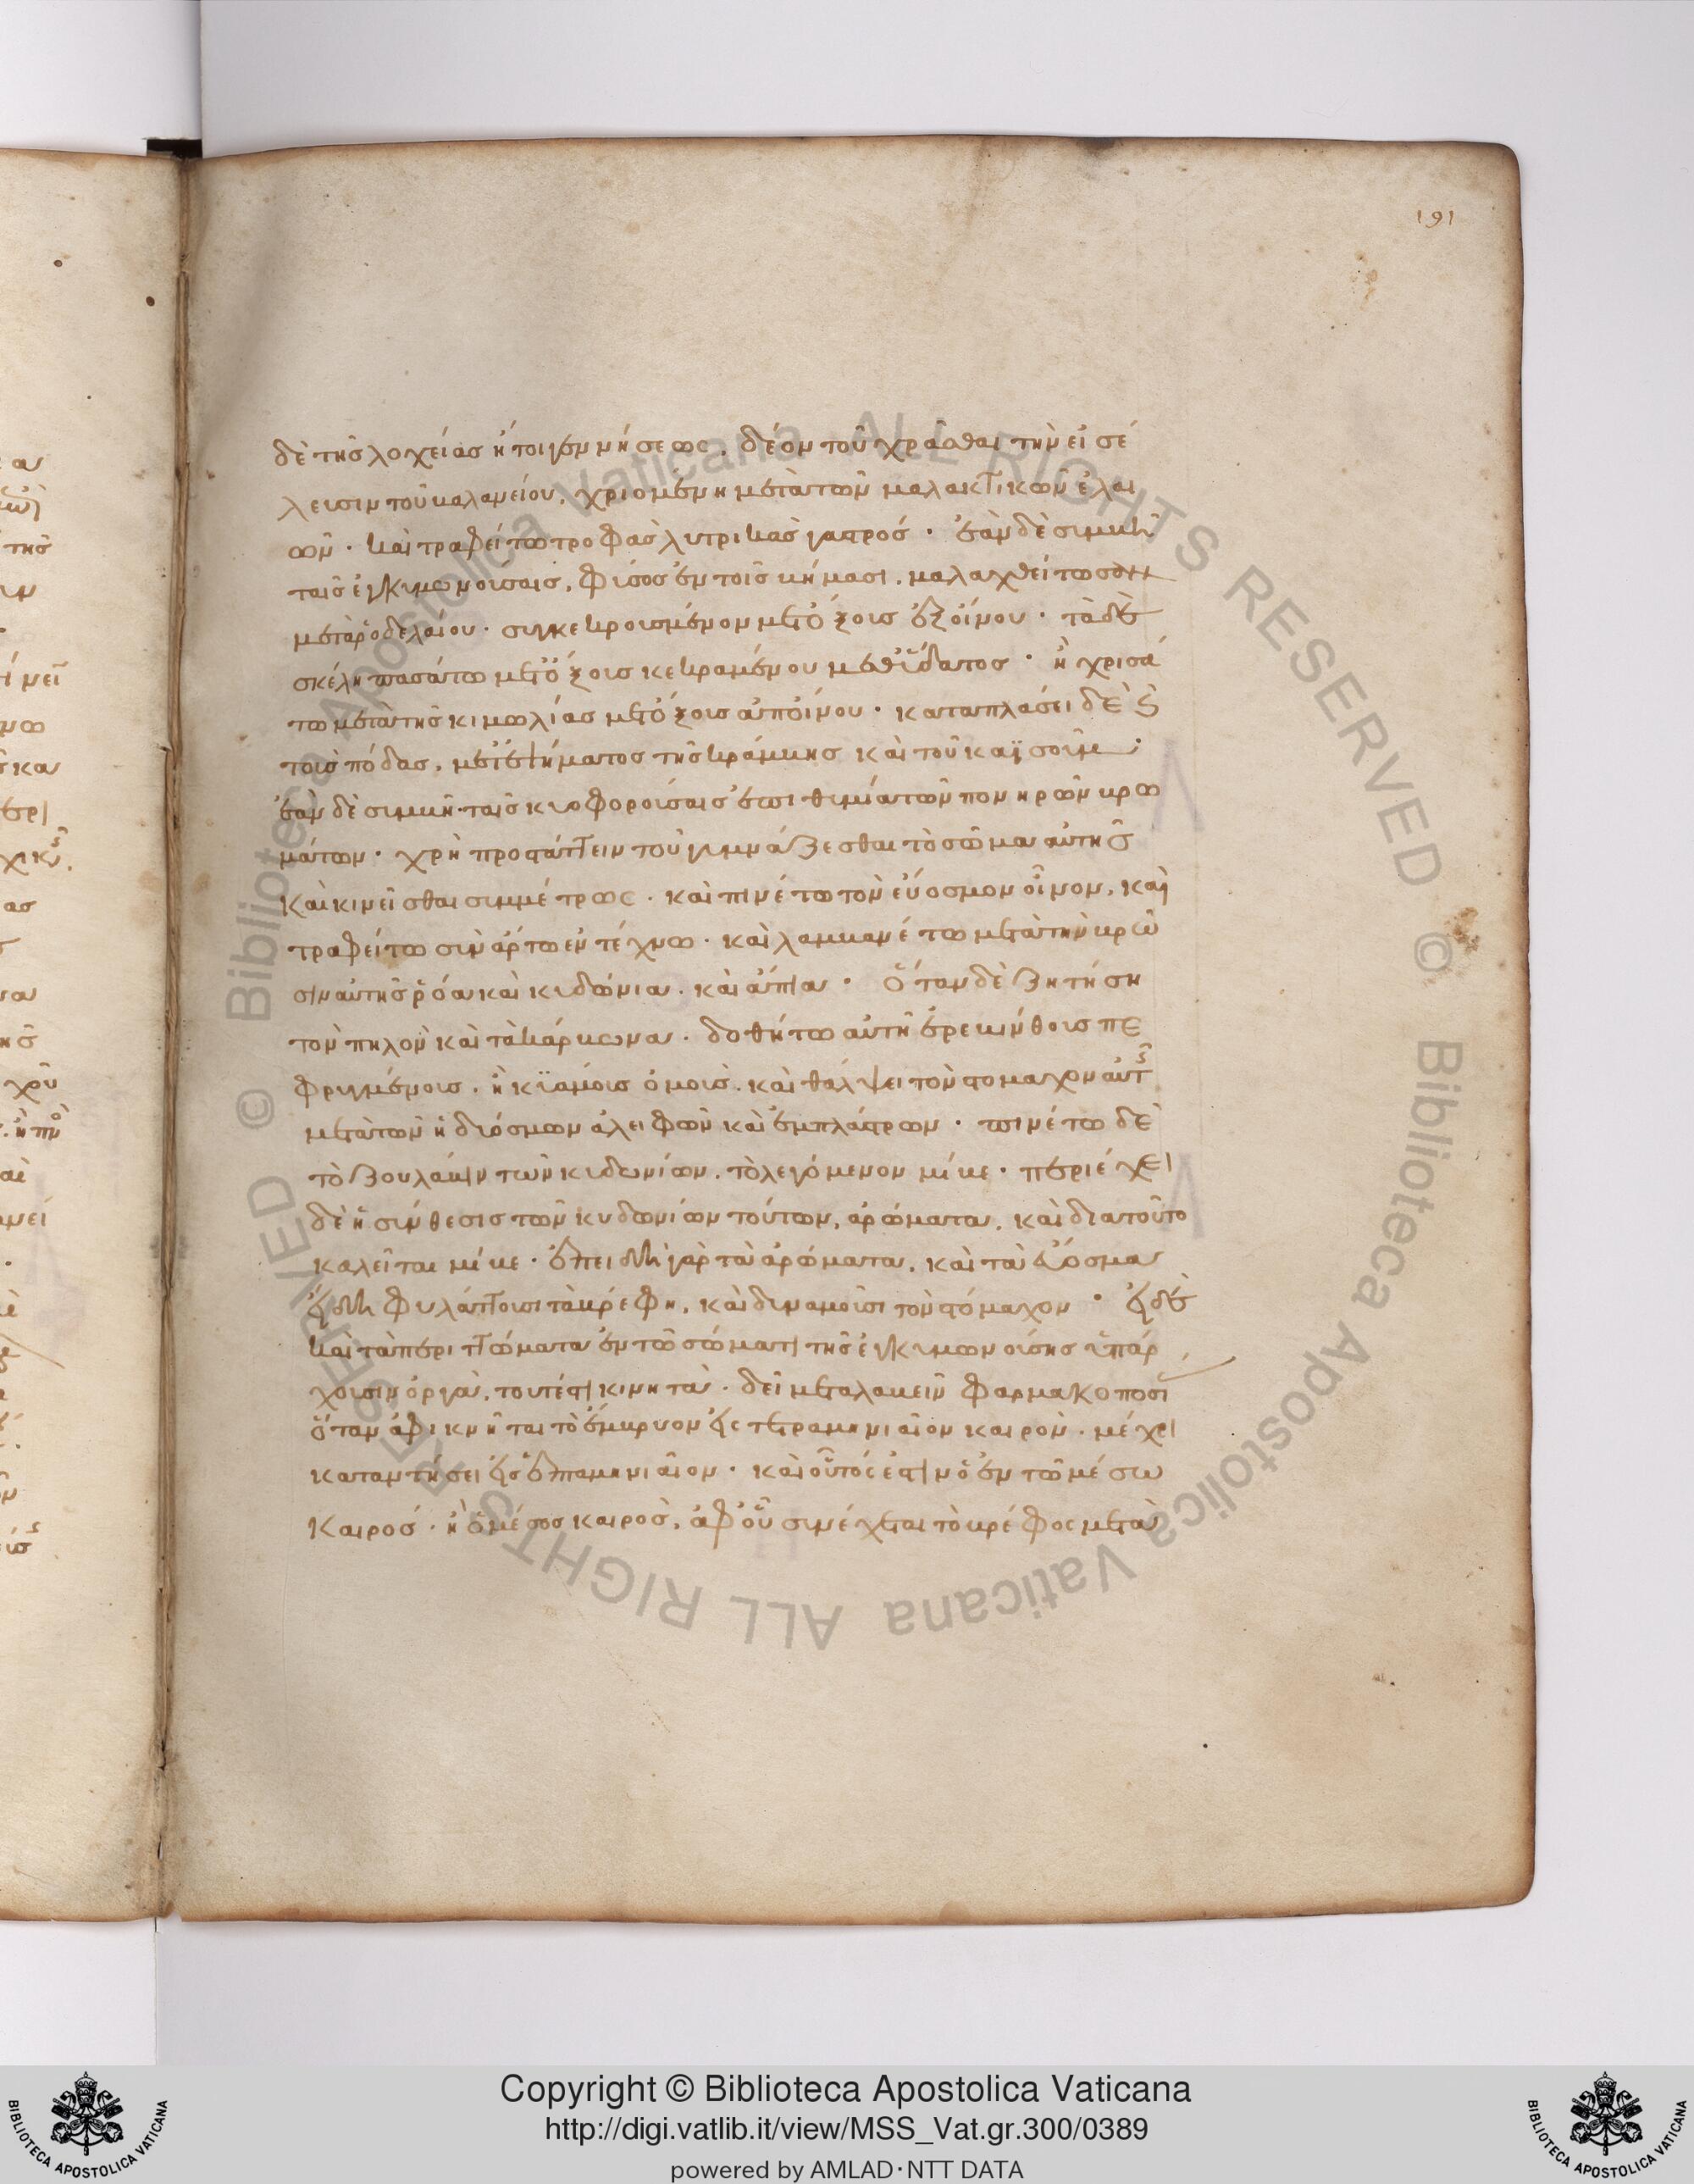 191
δὲ τῆς λοχείας ἤτοι γεννήσεως, δέον τοῦ χρᾶσθαι τὴν εἰσέ
λευσιν τοῦ βαλανείου, χριομένη μετὰ τῶν μαλακτικῶν ἐλαι
ῶν · καὶ τραφείτω τροφὰς λυτρικὰς γαστρός · ἐὰν δὲ συμβῆ
ταῖς ἐγκυμωνούσαις, φύσος ἐν τοῖς βήμασι, μαλαχθείτωσαν
μετὰ ῥοδελαίου · συγκεκρουσμένον μετ ὄξους ἐξ οἴνου · τὰ δὲ
σκέλη πασάτω μετ ὄξους κεκραμένου μεθ ὕδατος · ἢ χρισά
τω μετὰ τῆς κιμωλίας μετ ὄξους ἀπ οἴνου · καταπλάσει δὲ καὶ
τοὺς πόδας, μετ ἑψήματος τῆς κράμβης καὶ τοῦ καϊσοῦμ ·
ἐὰν δὲ συμβῆ ταῖς κυοφορούσαις ἐπιθυμία τῶν πονηρῶν βρω
μάτων · χρὴ προστάττειν τοῦ γυμνάζεσθαι τὸ σῶμα αὐτῆς
καὶ κινεῖσθαι συμμέτρως · καὶ πινέτω τὸν εὔοσμον οἶνον, καὶ
τραφείτω σὺν ἄρτω ἐν τέχνω · καὶ λαμβανέτω μετὰ τὴν βρῶ
σιν αὐτῆς ῥόα καὶ κυδώνια · καὶ ἄπια · ὅταν δὲ ζητήση
τὸν πηλὸν καὶ τὰ κάρβωνα · δοθήτω αὐτῆ ἐρεβίνθους πε
φρυγμένους, ἢ κυάμους ὁμούς, καὶ θάλψει τὸν στόμαχον αὐτῆς
μετὰ τῶν ἡδυόσμων ἀλειφῶν καὶ ἐμπλάστρων · πινέτω δὲ
τὸ ζουλάπιν τῶν κυδωνίων, τὸ λεγόμενον μίβε · περιέχει
δὲ ἡ σύνθεσις τῶν κυδωνίων τούτων, ἀρώματα, καὶ διατοῦτο
καλεῖται μίβε · ἐπειδὴ γὰρ τὰ ἀρώματα, καὶ τὰ εὔοσμα
ἤδη φυλάττουσι τὰ βρέφη, καὶ δυναμοῦσι τὸν στόμαχον · εἰ δὲ
καὶ τὰ περιττώματα ἐν τῶ σώματι τῆς ἐγκυμωνούσης ὑπάρ
χουσιν ὀργὰ, τουτέστι κινητὰ · δεῖ μεταλαβεῖν φαρμακοποσί
ὅταν ἀφικνῆται τὸ ἔμβρυον εἰς τετραμηνιαῖον καιρὸν · μέχρι
καταντήσει εἰς ἑπταμηνιαῖον · καὶ οὗτός ἐστιν ὁ ἐν τῶ μέσω
καιρός · ἢ ὁ μέσος καιρὸς, ἀφ οὗ συνέχεται τὸ βρέφος μετὰ
Copyright © Biblioteca Apostolica Vaticana
http://digi.vatlib.it/view/MSS_Vat.gr.300/0389
powered by AMLAD·NTT DATA